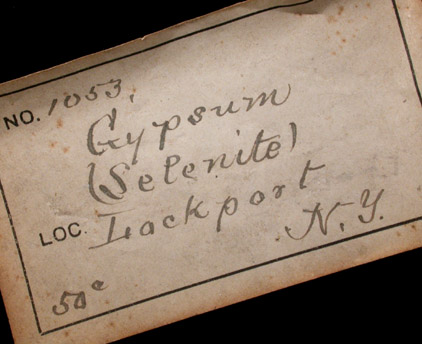 NO. 1053.
Gypsum
(Selenite)
LOC. Lockport
N.Y.
50c